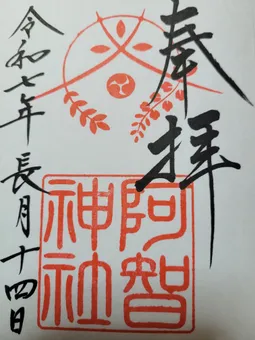 奉拝
阿智
神社
令和七年長月十四日